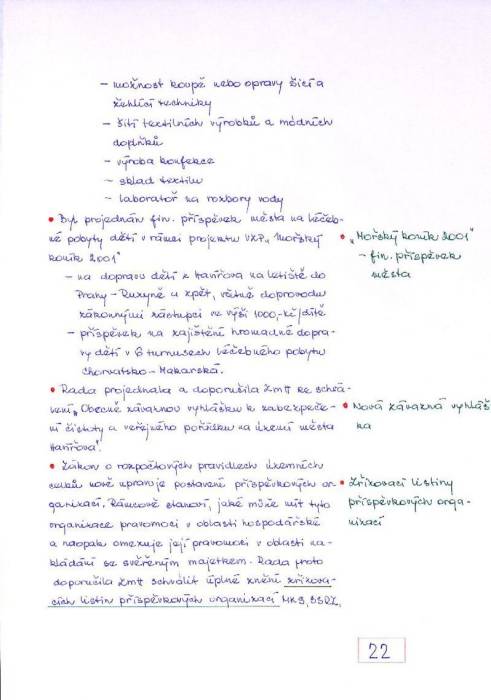 – možnost koupě nebo opravy šicí a
žehlící techniky
– šití textilních výrobků a módních
doplňků
– výroba konfekce
– sklad textilu
– laboratoř na rozbory vody
• Byl projednán fin. příspěvek města na léčeb-
né pobyty dětí v rámci projektu VZP „Mořský
koník 2001"
– na dopravu dětí z Havířova na letiště do
Prahy - Ruzyně a zpět, včetně doprovodu
zákonnými zástupci ve výši 1000,-Kč/dítě
– příspěvek na zajištění hromadné dopra-
vy dětí v 6 turnusech léčebného pobytu
Chorvatsko - Makarská.
• Rada projednala a doporučila ZMH ke schvá-
lení „Obecně závaznou vyhlášku k zabezpeče-
ní čistoty a veřejného pořádku na území města
Havířova".
• Zákon o rozpočtových pravidlech územních
celků nově upravuje postavení příspěvkových or-
ganizací. Rámcově stanoví, jaké může mít tyto
organizace pravomoci v oblasti hospodářské
a naopak omezuje její pravomoci v oblasti na-
kládání se svěřeným majetkem. Rada proto
doporučila ZMH schválit úplné znění zřizova-
cích listin příspěvkových organizací MKS, SSRZ,
• „Mořský koník 2001"
– fin. příspěvek
města
• Nová závazná vyhláš-
ka
• Zřizovací listiny
příspěvkových orga-
nizací
22